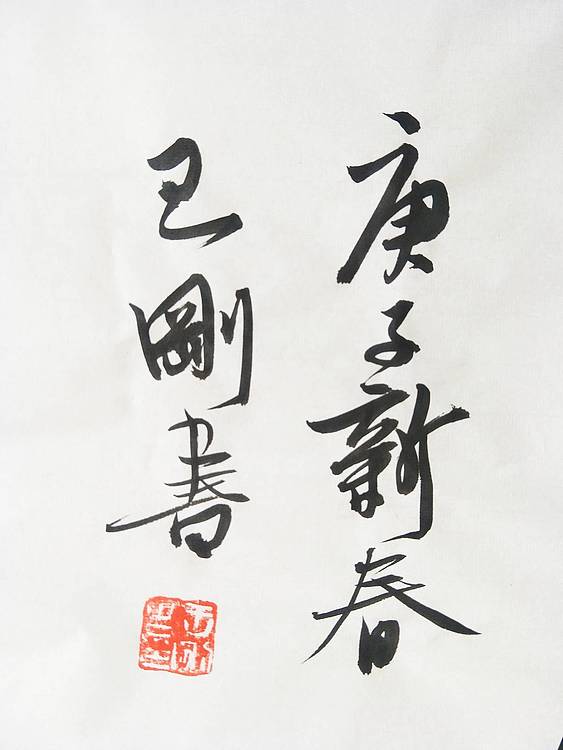 庚子新春
王剛書